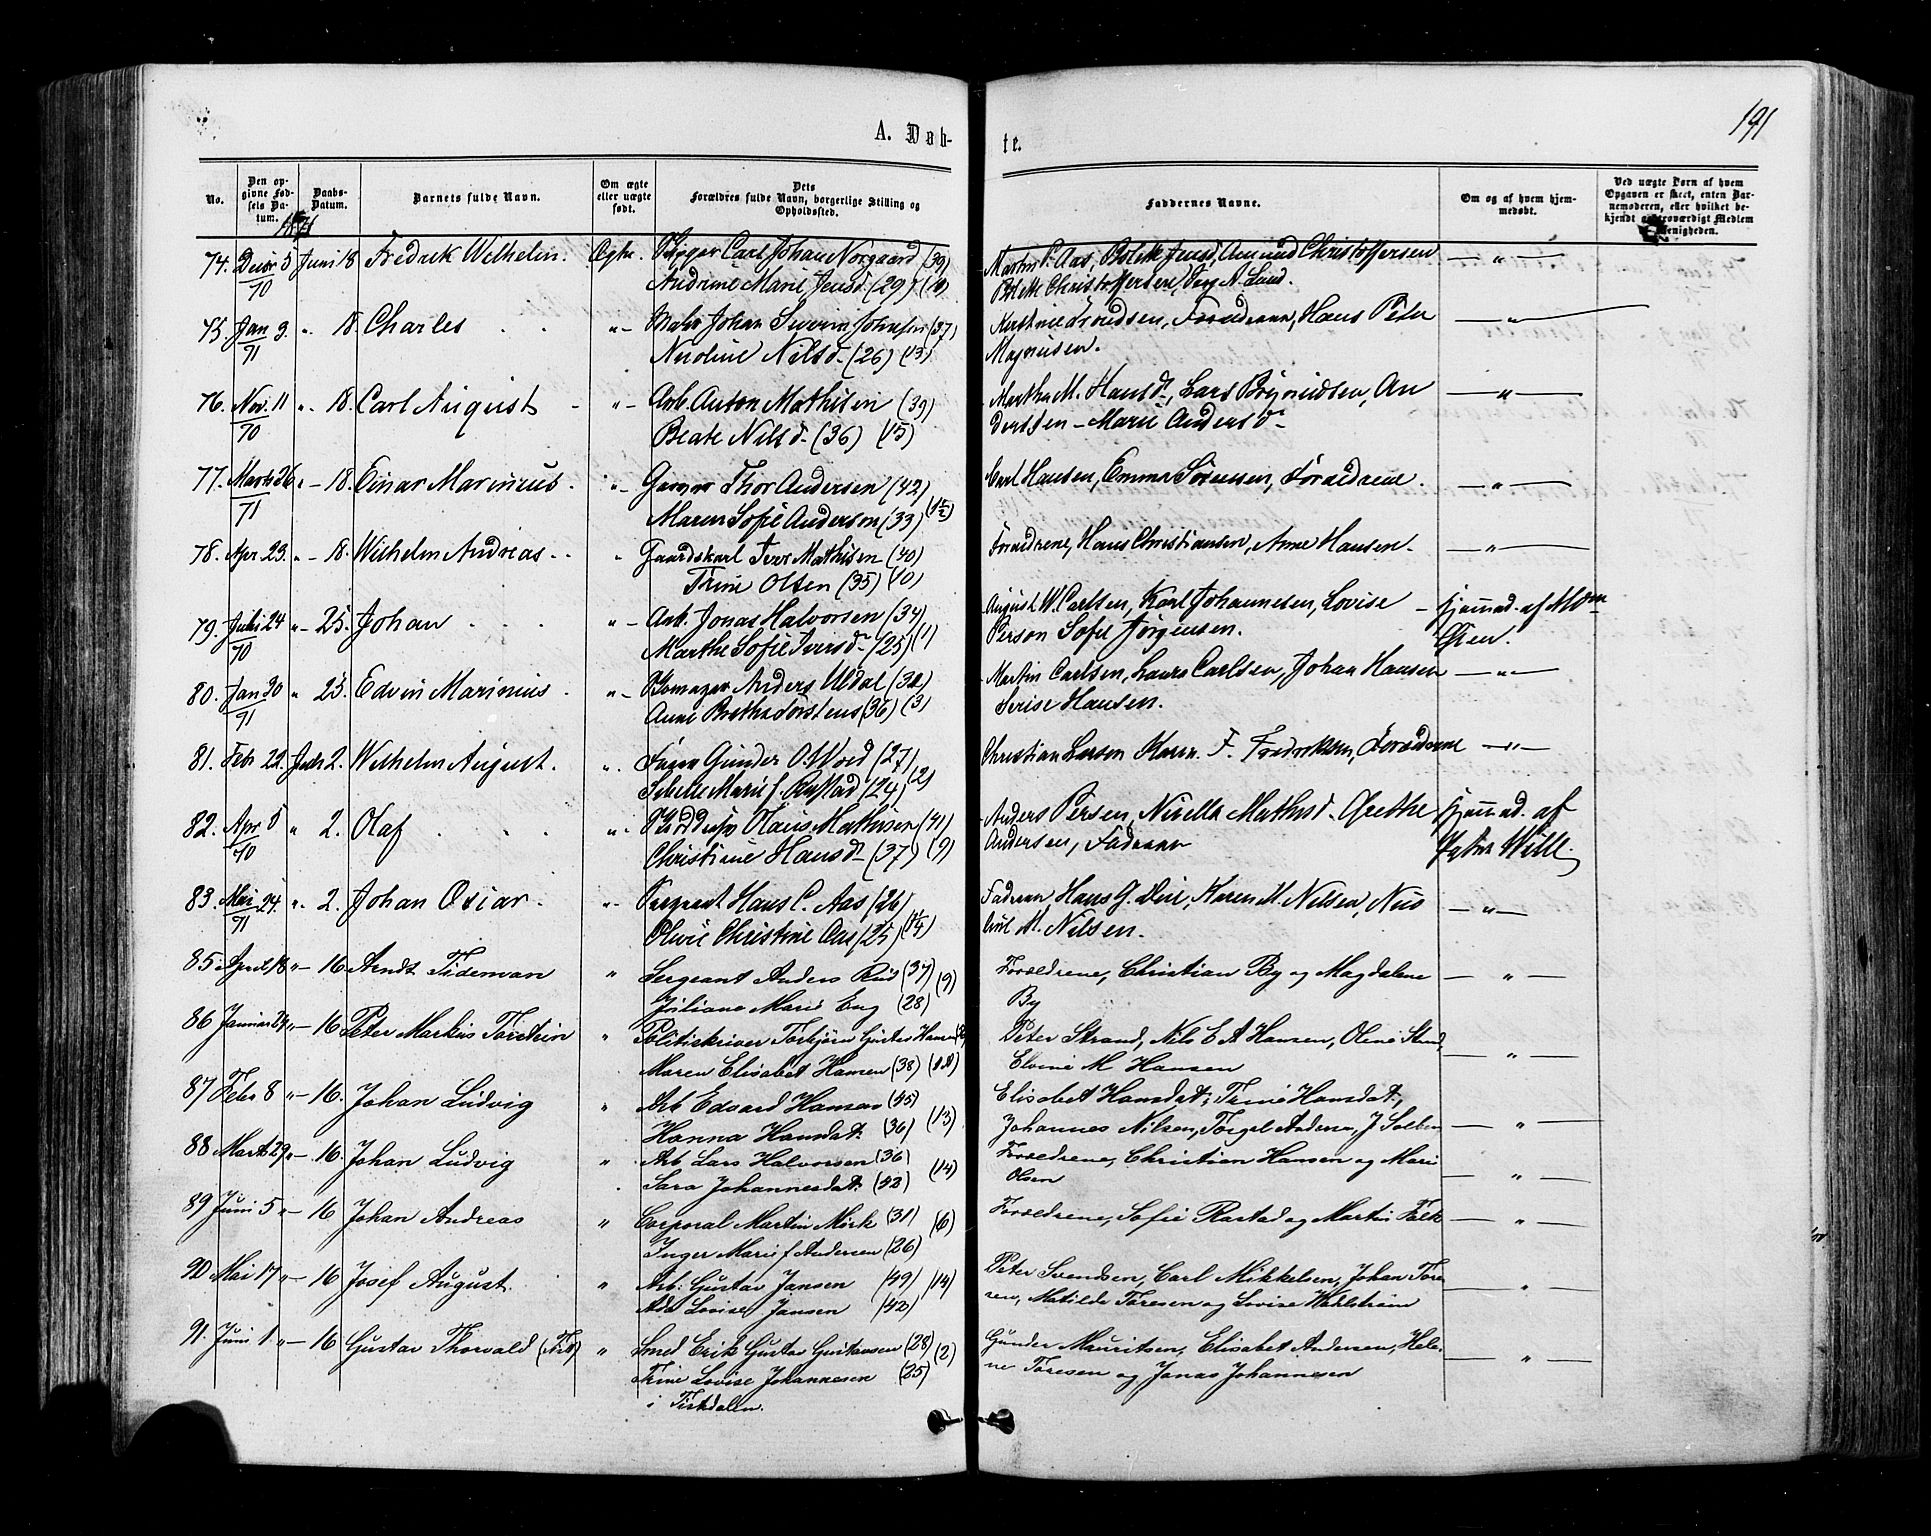 191
A. Døb-
te.
No.
Den opgivne Fødsels Datum.
Daabs-Datum.
Barnets fulde Navn.
Om ægte eller uægte født.
Dets Forældres fulde Navn, borgerlige Stilling og Opholdssted.
Faddernes Navne.
Om og af hvem hjemmedøbt.
Ved uægte Børn af hvem Opgaven er skeet, enten Barnemoderen, eller hvilket bekjendt og troværdigt Medlem af Menigheden.
1871
74. Decbr 5 Juni 18 Fredrik Wilhelm. Ægte. Carl Johan Norgaard (39) Martin C. Aas, Bolette Jensd, Amund Christoffersen — " —
70 Andrine Marie Jensd. (29) Bolette Christoffersen, A. Lund.
75. Jan 9. " 18. Charles . . " - Maler Johan Severin Johnsen (37) Knudsen, Faderen, Hans Peter — " —
71 Nicoline Nilsd (26) (13) Magnusen.
76. Nov. 11 " 18. Carl August - " - Arb. Anton Mathisen (39) Marthe M. Hansd, Lars Brynildsen, An — " —
70 Beate Nilsd - (36) (15) dersen - Marie Andersd -
77. Marts 26 " - 18. Einar Marinius. " - Thor Andersen (42) Carl Hansen, Emma Sørensen, Forældrene. — " —
71 Maren Sofie Anderson (39) (1½)
78. Apr 23. " - 18. Wilhelm Andreas. . " Gaardskarl Iver Mathisen (40) Forældrene, Hans Christiansen, Anne Hansen. — " —
Trine Olsen (35) (10)
79. Juli 24 " - 25. Johan . . . " - Arb. Jonas Halvorsen (34) August W. Carlsen, Karl Johannesen, Lovise - hjemmed. af
70 Marthe Sofie Iversd - (25) (1) Person Sofie Jørgensen.
80. Jan 30 " 25. Edvin Marinius . " - Anders Uldal (32) Martin Carlsen, Laura Carlsen, Johan Hansen — " —
71 Anne Torstens (36) (3) Serise Hansen.
81. Febr 22. Juli 2. Wilhelm August. " . Gunder O. Moed (27) Christian Larsen Karen F. Fredriksen, Forældrene — " —
Marie f. Rustad (24) (2)
82. Apr 8 " 2. Olaf . . . " . Olaus Mathisen (41) Anders Persen, Mathisd. Grethe hjemmed. af
70 Christine Hansd - (37) (9) Andersen, Faderen Wille.
83. Mai 24. " . 2. Johan Oscar . " - Sergeant Hans C. Aas (26) Faderen Hans G. Karen M. Nilsen, Nico — " —
71 Olivie Christine Aas (25) line M. Nilsen.
85. April 18 " - 16. Arndt Tideman " Sergeant Anders Rud (37) (9) Forældrene, Christian By og Magdalene — " —
Juliane Marie Eng (28) By
86 Januar 24 " - 16 Peter Markus Torstein " Politiskriver Torbjørn Gustav Hansen Peter Strand, Nils E A Hansen, Oline — " —
Maren Elisabet Hansen (38) Elvine M Hansen
87 Febr 8 " - 16. Johan Ludvig " Arb Edvard Hansen (45) (13) Elisabet Hansdat., Trine Hansdat., — " —
Hanna Hansdat. (36) Johannes Nilsen, Torgel Andersen, J
88 Marts 29 " - 16. Johan Ludvig " Arb. Lars Halvorsen (36) (14) Forældrene, Christian Hansen og Marie — " —
Sara Johannesdat. (42) Olsen
89 Juni 5 " - 16 Johan Andreas " Corporal Martin Mørk (31) (6) Forældrene, Sofie Rastad og Martin Falk — " —
Inger Marie f. Andersen (26)
90 Mai 17 " - 16 Josef August. " Arb: Gustav Jansen (49) (14) Peter Svendsen, Carl Mikkelsen, Johan Tore- — " —
Ada Lovise Jansen (42) sen, Matilde Toresen og Lovise Wahlstrøm
91. Juni 1. " - 16 Gustav Thorvald " Smed Erik Gustav Gustavsen (28) (2) Gunder Mauritsen, Elisabet Andersen, Hele- — " —
Trine Lovise Johannesen (25) ne Toresen og Jonas Johannesen
i Tistdalen.